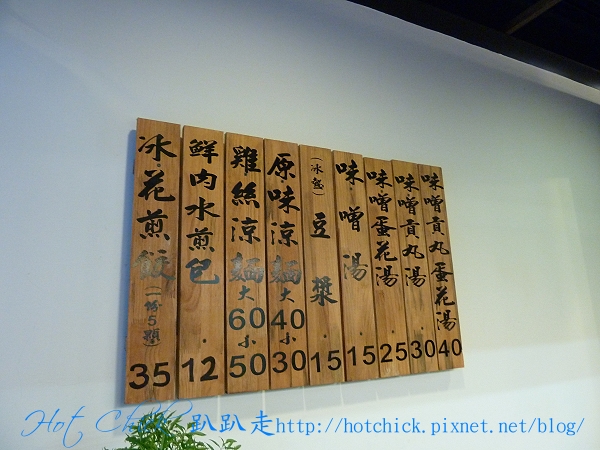 味噌貢丸蛋花湯 40
味噌貢丸湯 30
味噌蛋花湯 25
味噌湯 15
(冰盒)豆漿 15
原味涼麵 大40 小30
雞絲涼麵 大60 小50
鮮肉水煎包 12
冰花煎餃(一份5顆) 35
Hot Chick 趴趴走http://hotchick.pixnet.net/blog/